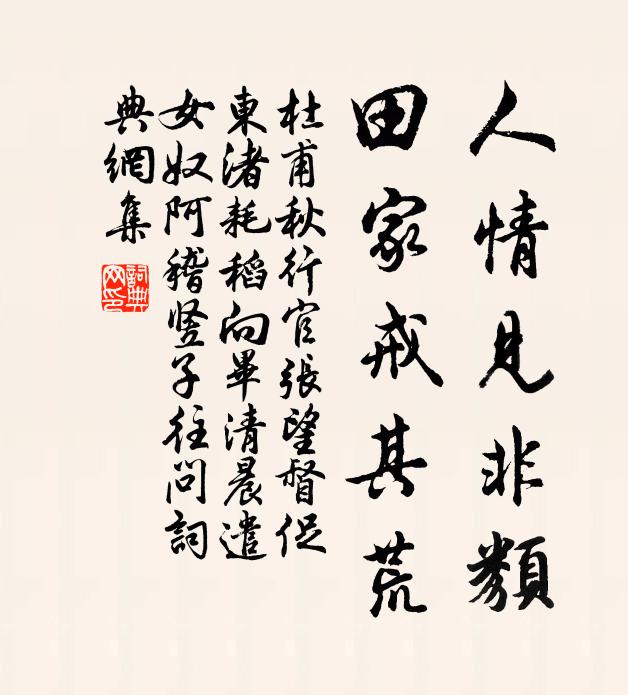 人情見非類
田家戒其荒
杜甫秋行官張望督促
東渚耗稻向畢清晨遣
女奴阿稽竖子往問詞
典網集
詞典
网印